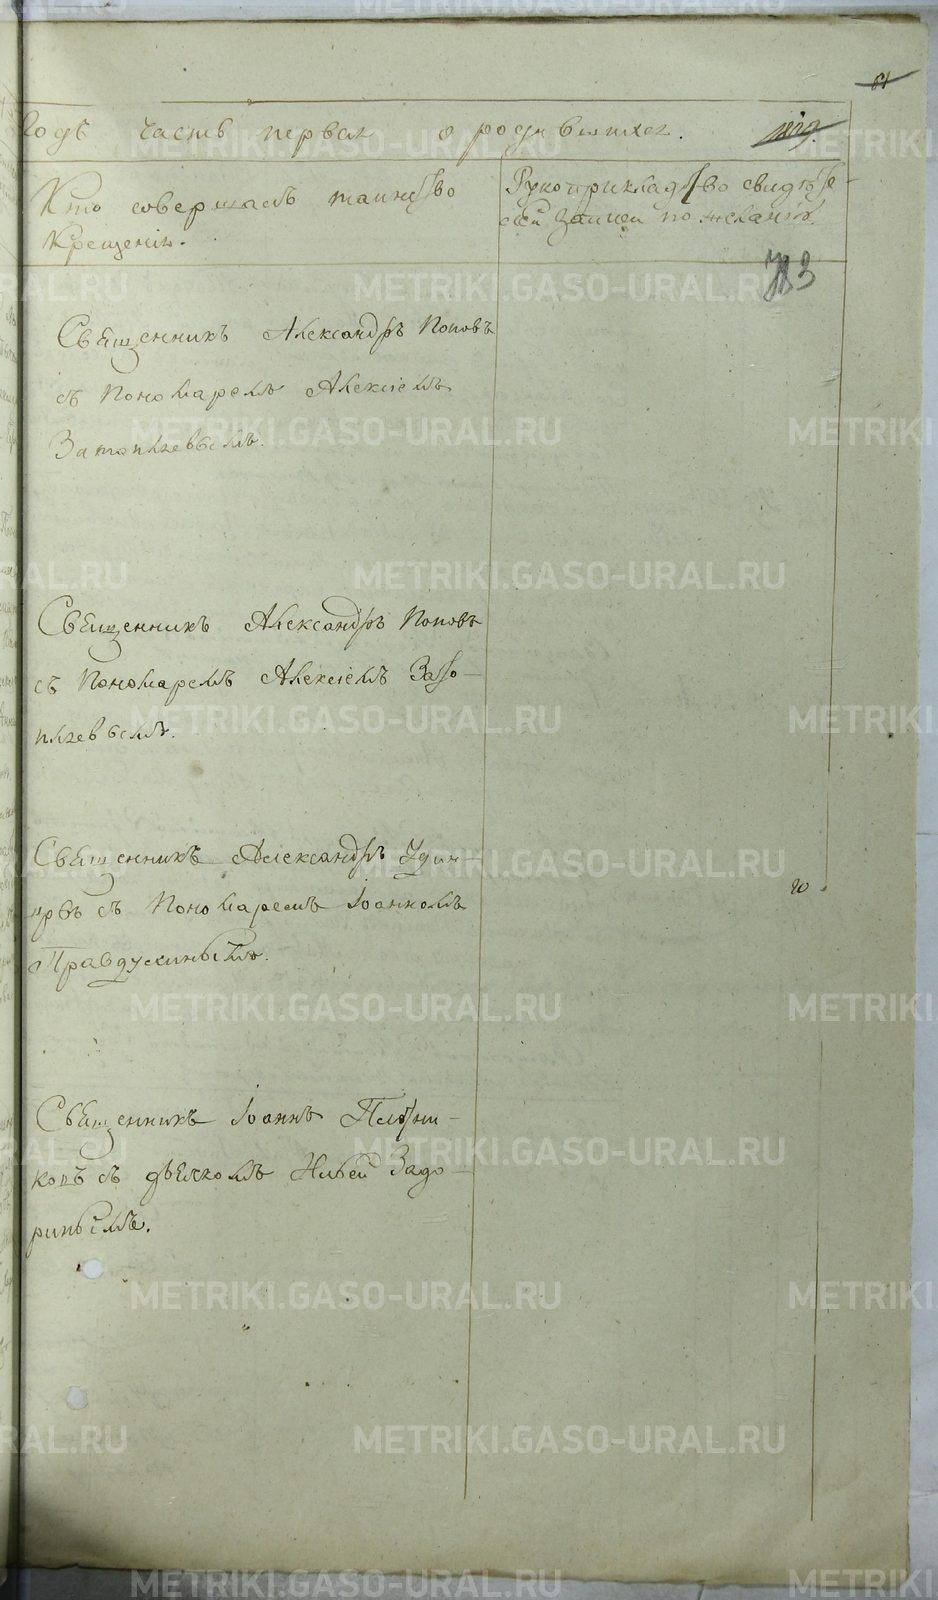 81
годъ часть первая о родившихся.
Кто совершалъ таинство
Крещенія.
Рукоприкладство свидѣте-
лей записи по желанію.
Священникъ Александръ Поповъ
съ Пономаремъ Алексіемъ
Затопляевымъ.
Священникъ Александръ Поповъ
съ Пономаремъ Алексіемъ Зато-
пляевымъ.
Священникъ Александръ Удин-
цовъ съ Пономаремъ Іоанномъ
Правдухинымъ.
Священникъ Іоаннъ Плотни-
ковъ съ дьячкомъ Задо-
ринымъ.
METRIKI.GASO-URAL.RU